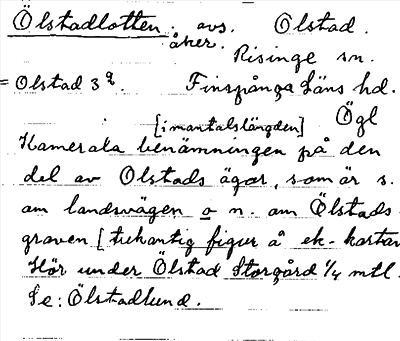 Ölstadlotten. avs. Olstad.
åker.
Risinge sn.
= Olstad 3 2. Finspånga Läns hd.
[i mantalslängden] Ögl
Kamerala benämningen på den
del av Olstads ägor, som är s.
om landsvägen o n. om Ölstads-
graven [trekantig figur å ek. kartan
Hör under Ölstad Storgård 1/4 mtl.
Se: Ölstadlund.